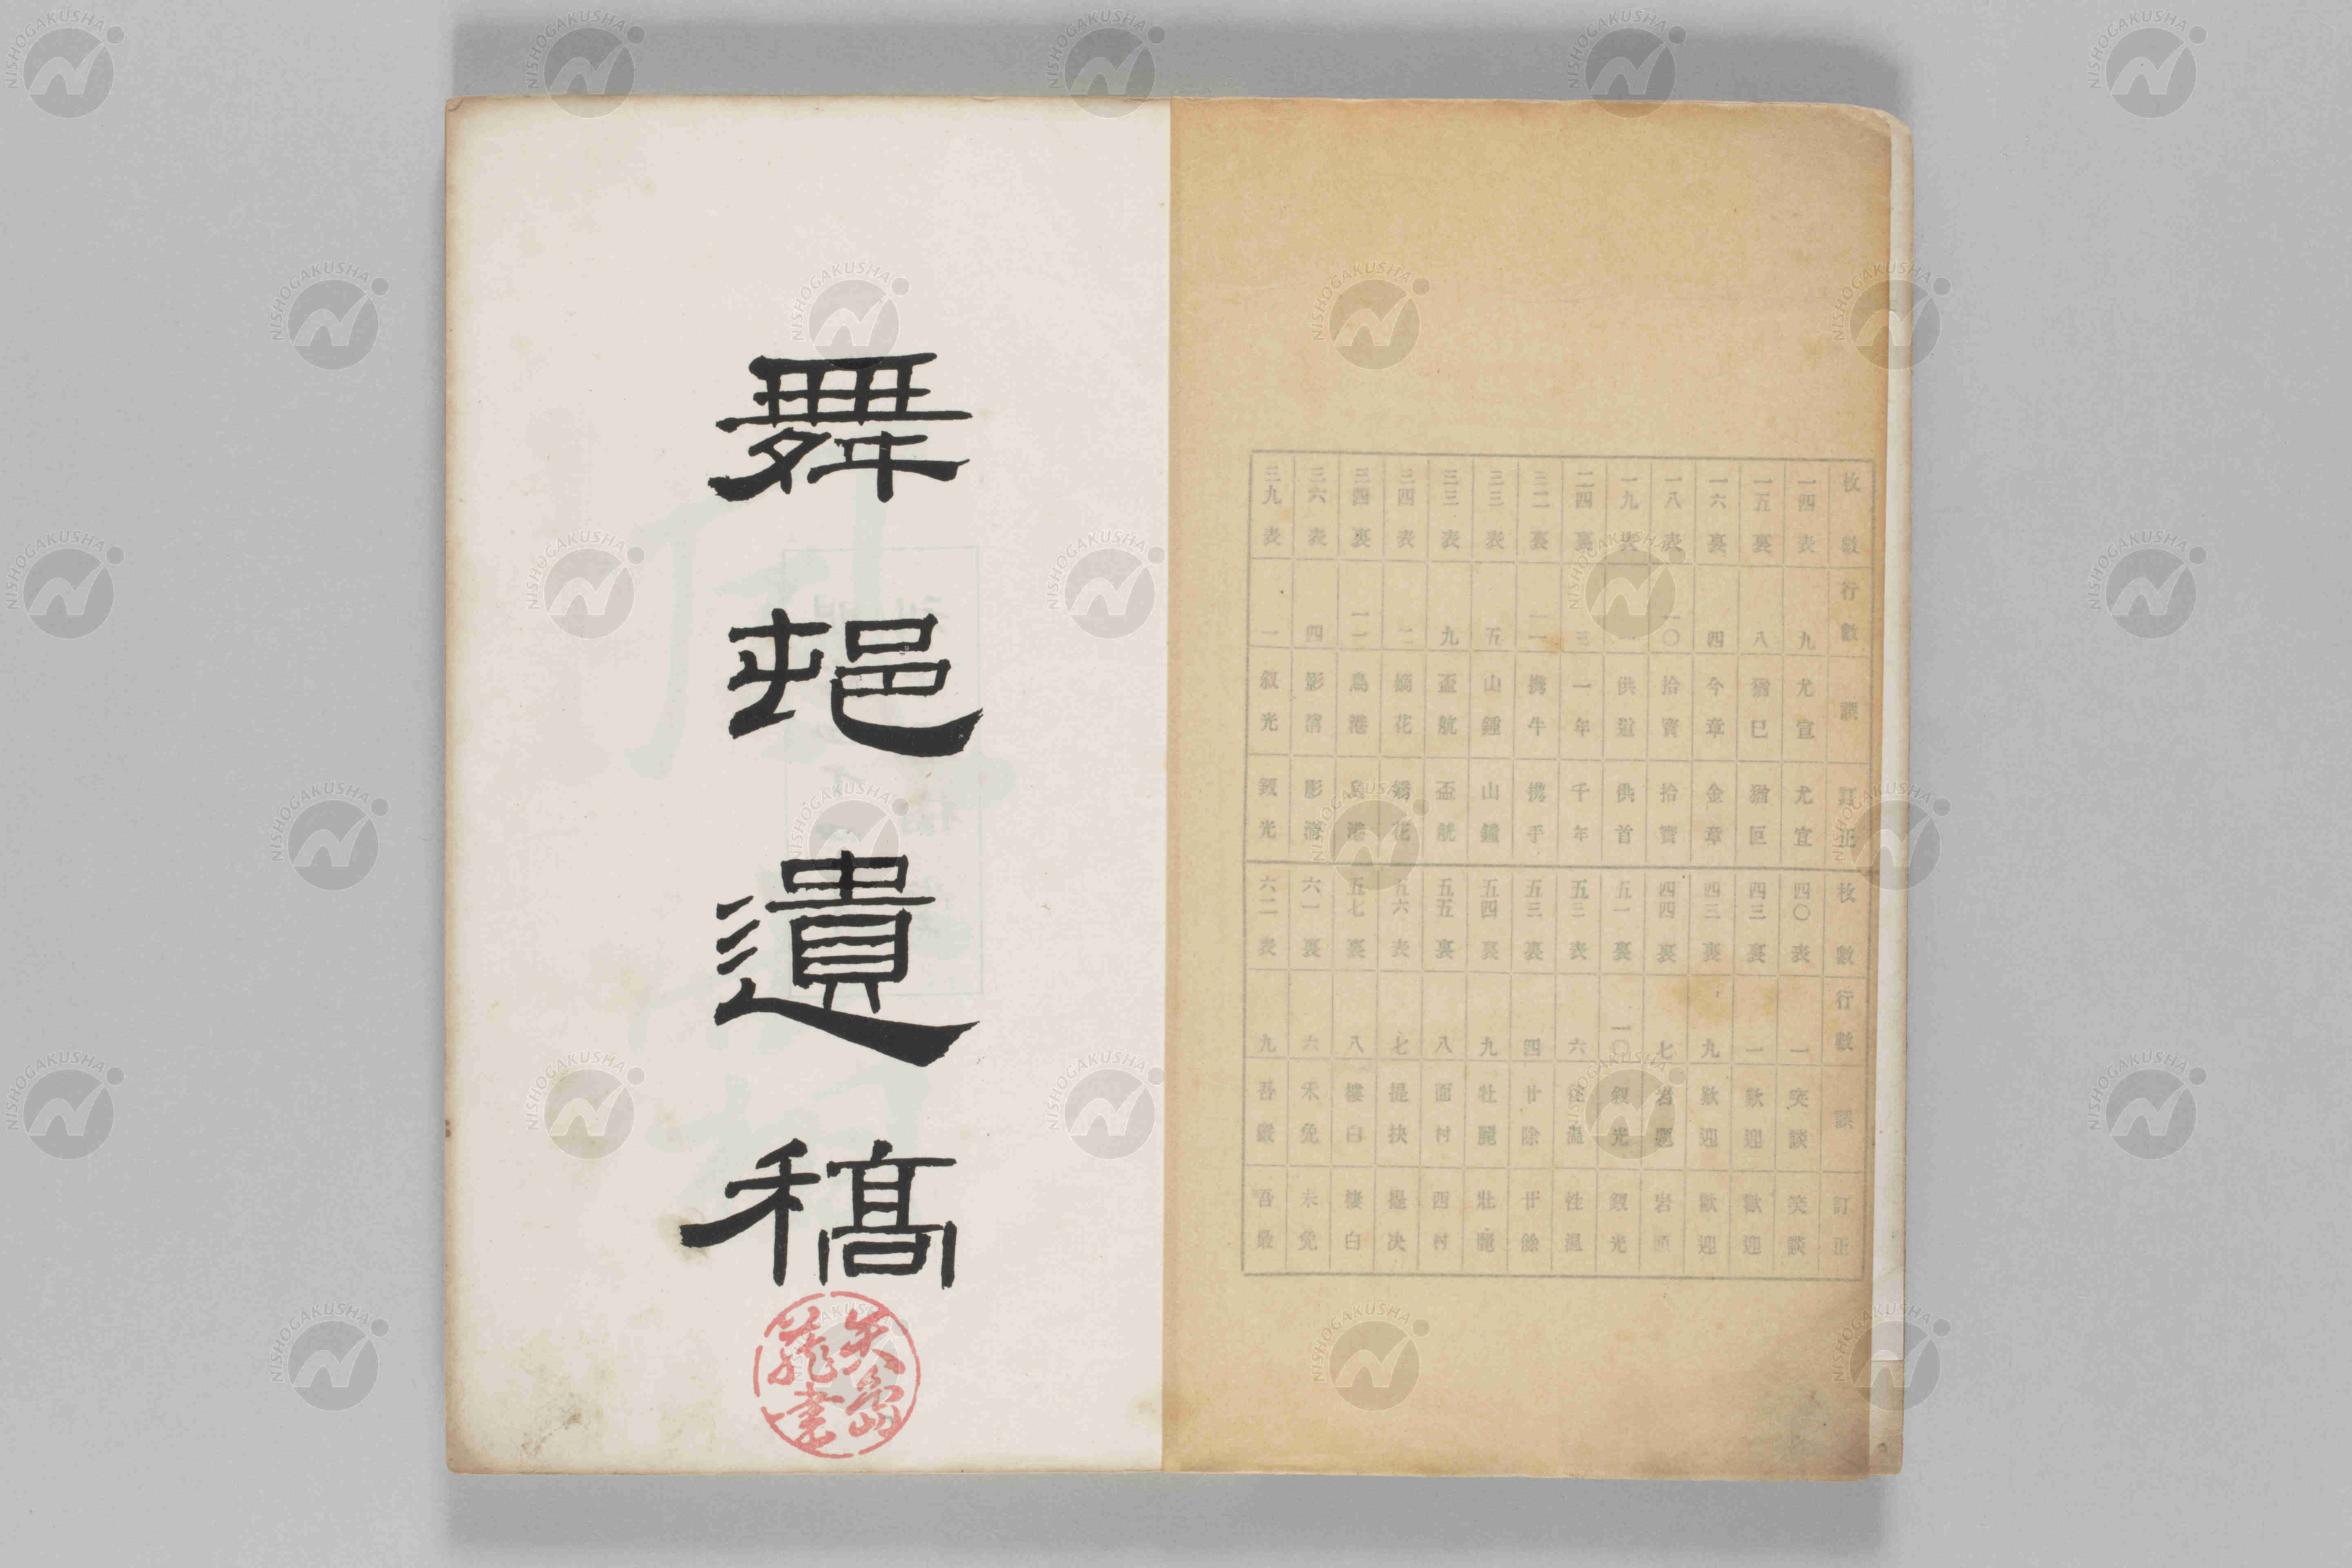 枚數 行數 誤 訂正
一四表 九 尤宣 尤宜
一五裏 八 猶巳 猶巨
一六裏 四 今章 金章
一八表 一〇 拾 拾寶
一九表 一 供道 供首
二四裏 三 一年 千年
三二裏 一一 携牛 携手
三三表 五 山鍾 山鐘
三三表 九 盃航 盃觥
三四表 二 花 花
三四裏 一一 鳥港
三六表 四 影 影清
三九表 一 叙光 釵光
枚數 行數 誤 訂正
四〇表 一 突談 笑談
四三裏 一 歎迎 歡迎
四三裏 九 歎迎 歡迎
四四裏 七 岩 岩頭
五一裏 一〇 叙光 釵光
五三表 六 温 性温
五三裏 四 廿除 廿餘
五四裏 九 牡麗 壯麗
五五裏 八 面村 西村
五六表 七 提抉 提决
五七裏 八 樓白 悽白
六一裏 六 禾免 未免
六二表 九 吾嚴 吾最
舞邨遺稿
矢嶌
蔵書
NISHOGAKUSHA